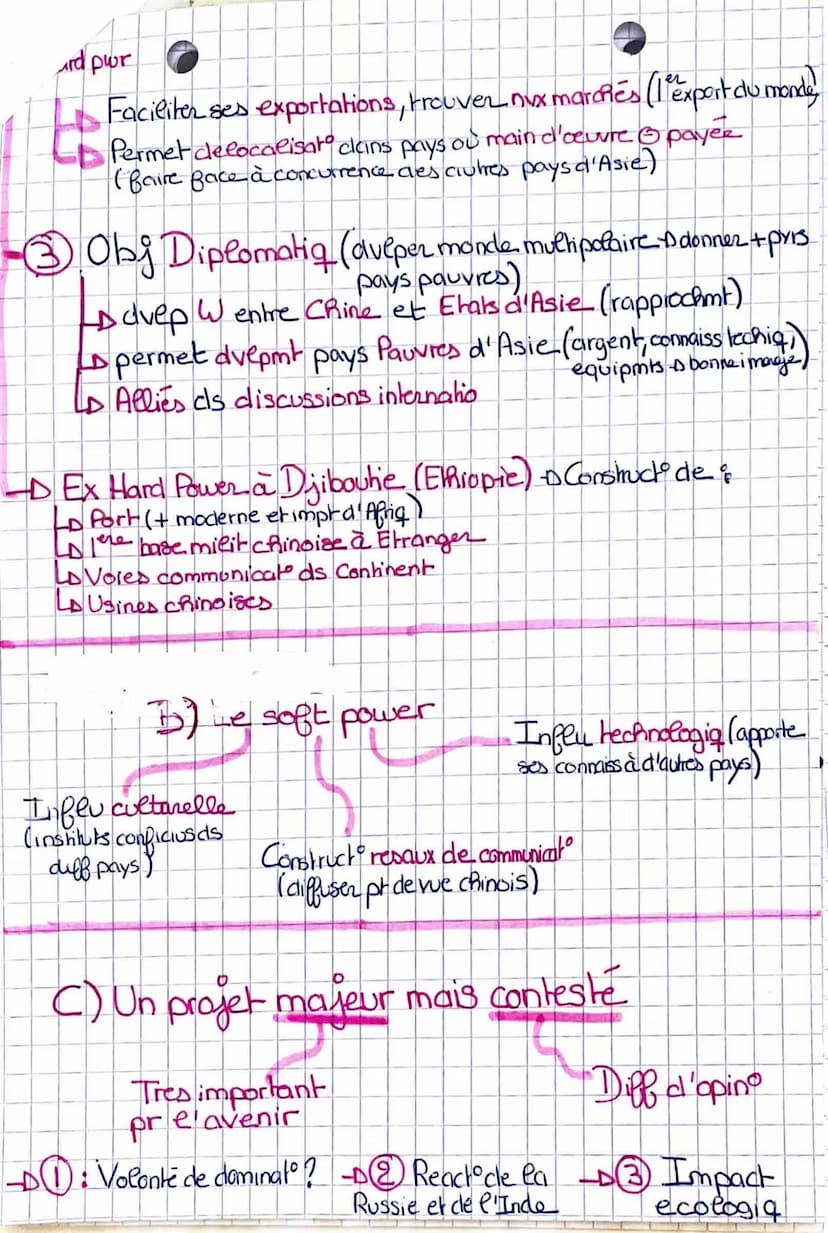 ard pwr
↳ Faciliter ses exportations, trouver nvx marchés (1er export du monde)
↳ Permet delocalisat° dans pays où main d'œuvre ⊖ payée
(faire face à concurrence des autres pays d'Asie)
③ Obj Diplomatiq (dvlper monde multipolaire → donner + pvrs
pays pauvres)
↳ dvep W entre Chine et Etats d'Asie (rapprochmt)
↳ permet dvepmt pays Pauvres d'Asie (argent, connaiss techniq,
equipmts → bonne image)
↳ Alliés ds discussions internatio
→ Ex Hard Power à Djiboutie (Ethiopie) → Construct° de :
↳ Port (+ moderne et impt d'Afriq)
↳ 1ere base milit chinoise à Etranger
↳ Voies communicat° ds Continent
↳ Usines chinoises
B) Le soft power
Influ technologiq (apporte
ses connaiss à d'autres pays)
Influ culturelle
(instituts conficius ds
diff pays)
Construct° resaux de communicat°
(diffuser pt de vue chinois)
C) Un projet majeur mais contesté
Tres important
pr l'avenir
Diff d'opin°
→ ① : Volonté de dominat° ? → ② React° de la → ③ Impact
Russie et de l'Inde ecologiq